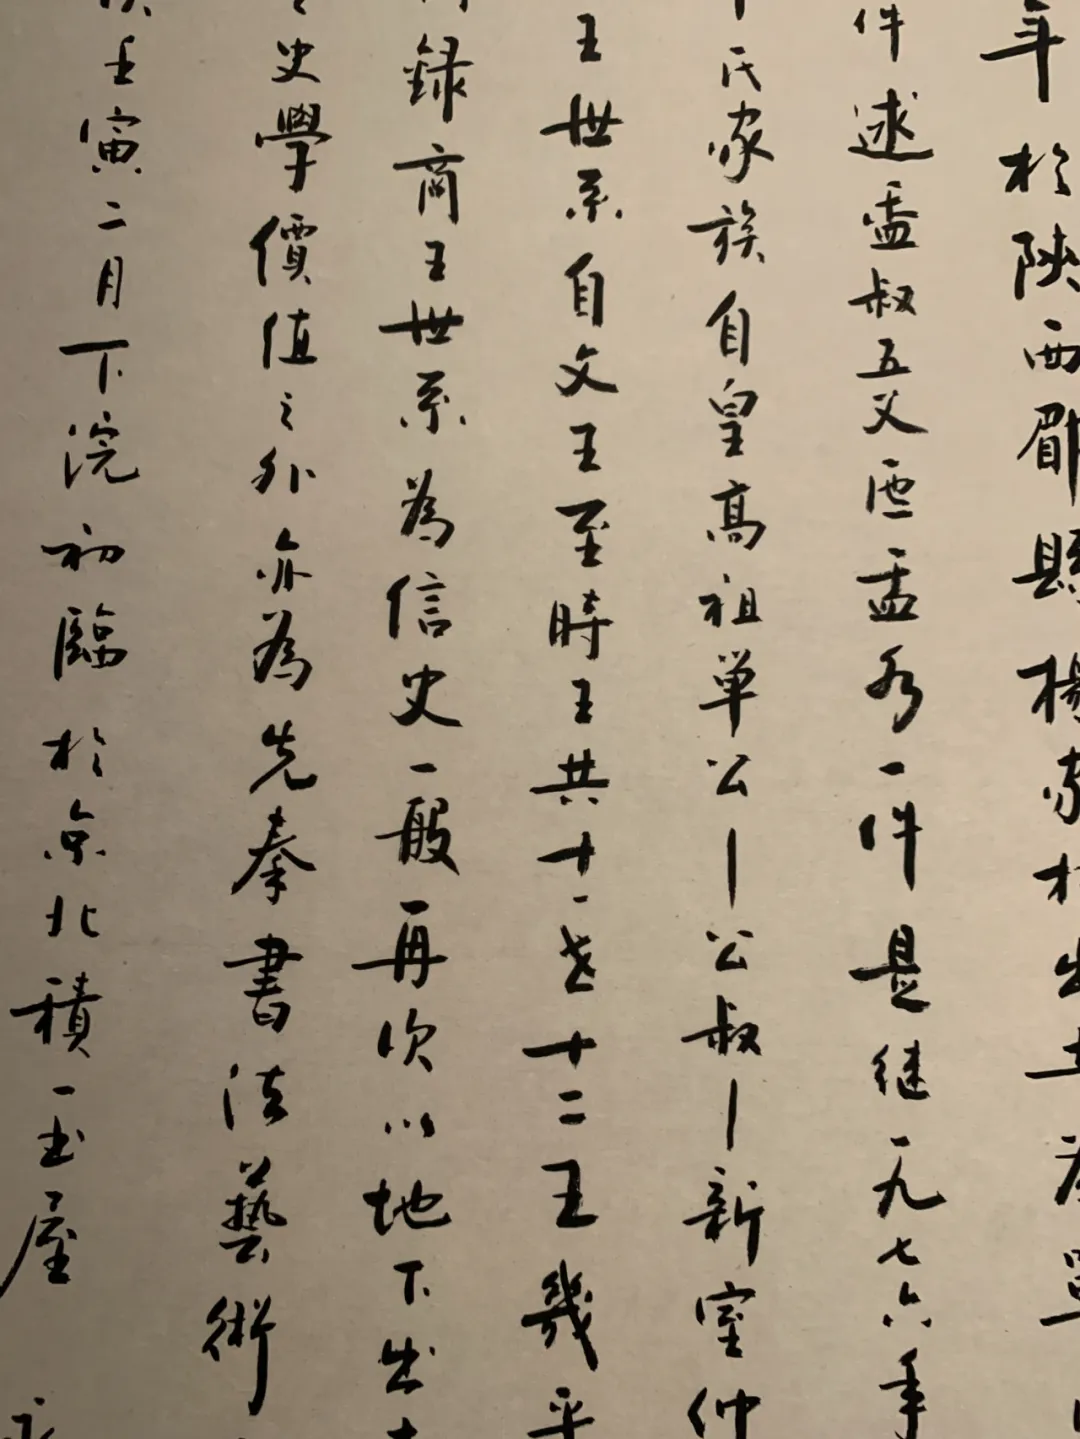 年於陝西郿縣楊家村出土為單
件逑盉叔五父匜盂各一件是继一九七六年
氏家族自皇高祖单公一公叔一新室仲
王世系自文王至時王共十一世十二王幾乎
録商王世系為信史一般再次以地下出土
史學價值之外亦為先秦書法藝術
壬寅二月下浣初臨於京北積玉屋